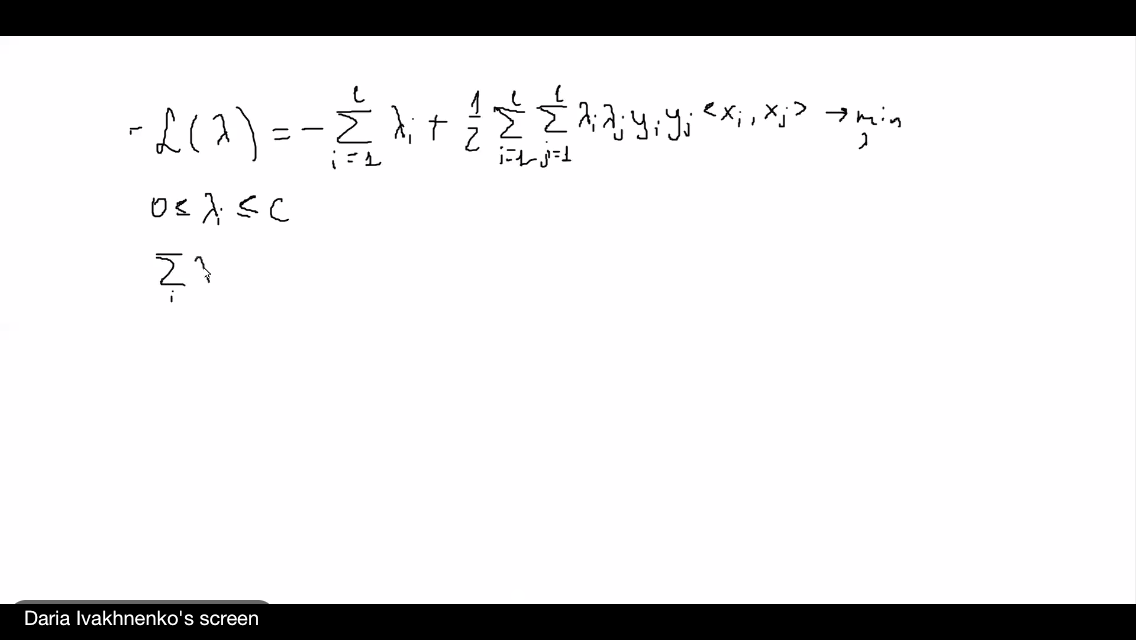 - ℒ(λ) = - ∑_{i=1}^{l} λ_i + 1/2 ∑_{i=1}^{l} ∑_{j=1}^{l} λ_i λ_j y_i y_j <x_i, x_j> → min_λ
0 ≤ λ_i ≤ C
∑_i λ
Daria Ivakhnenko's screen